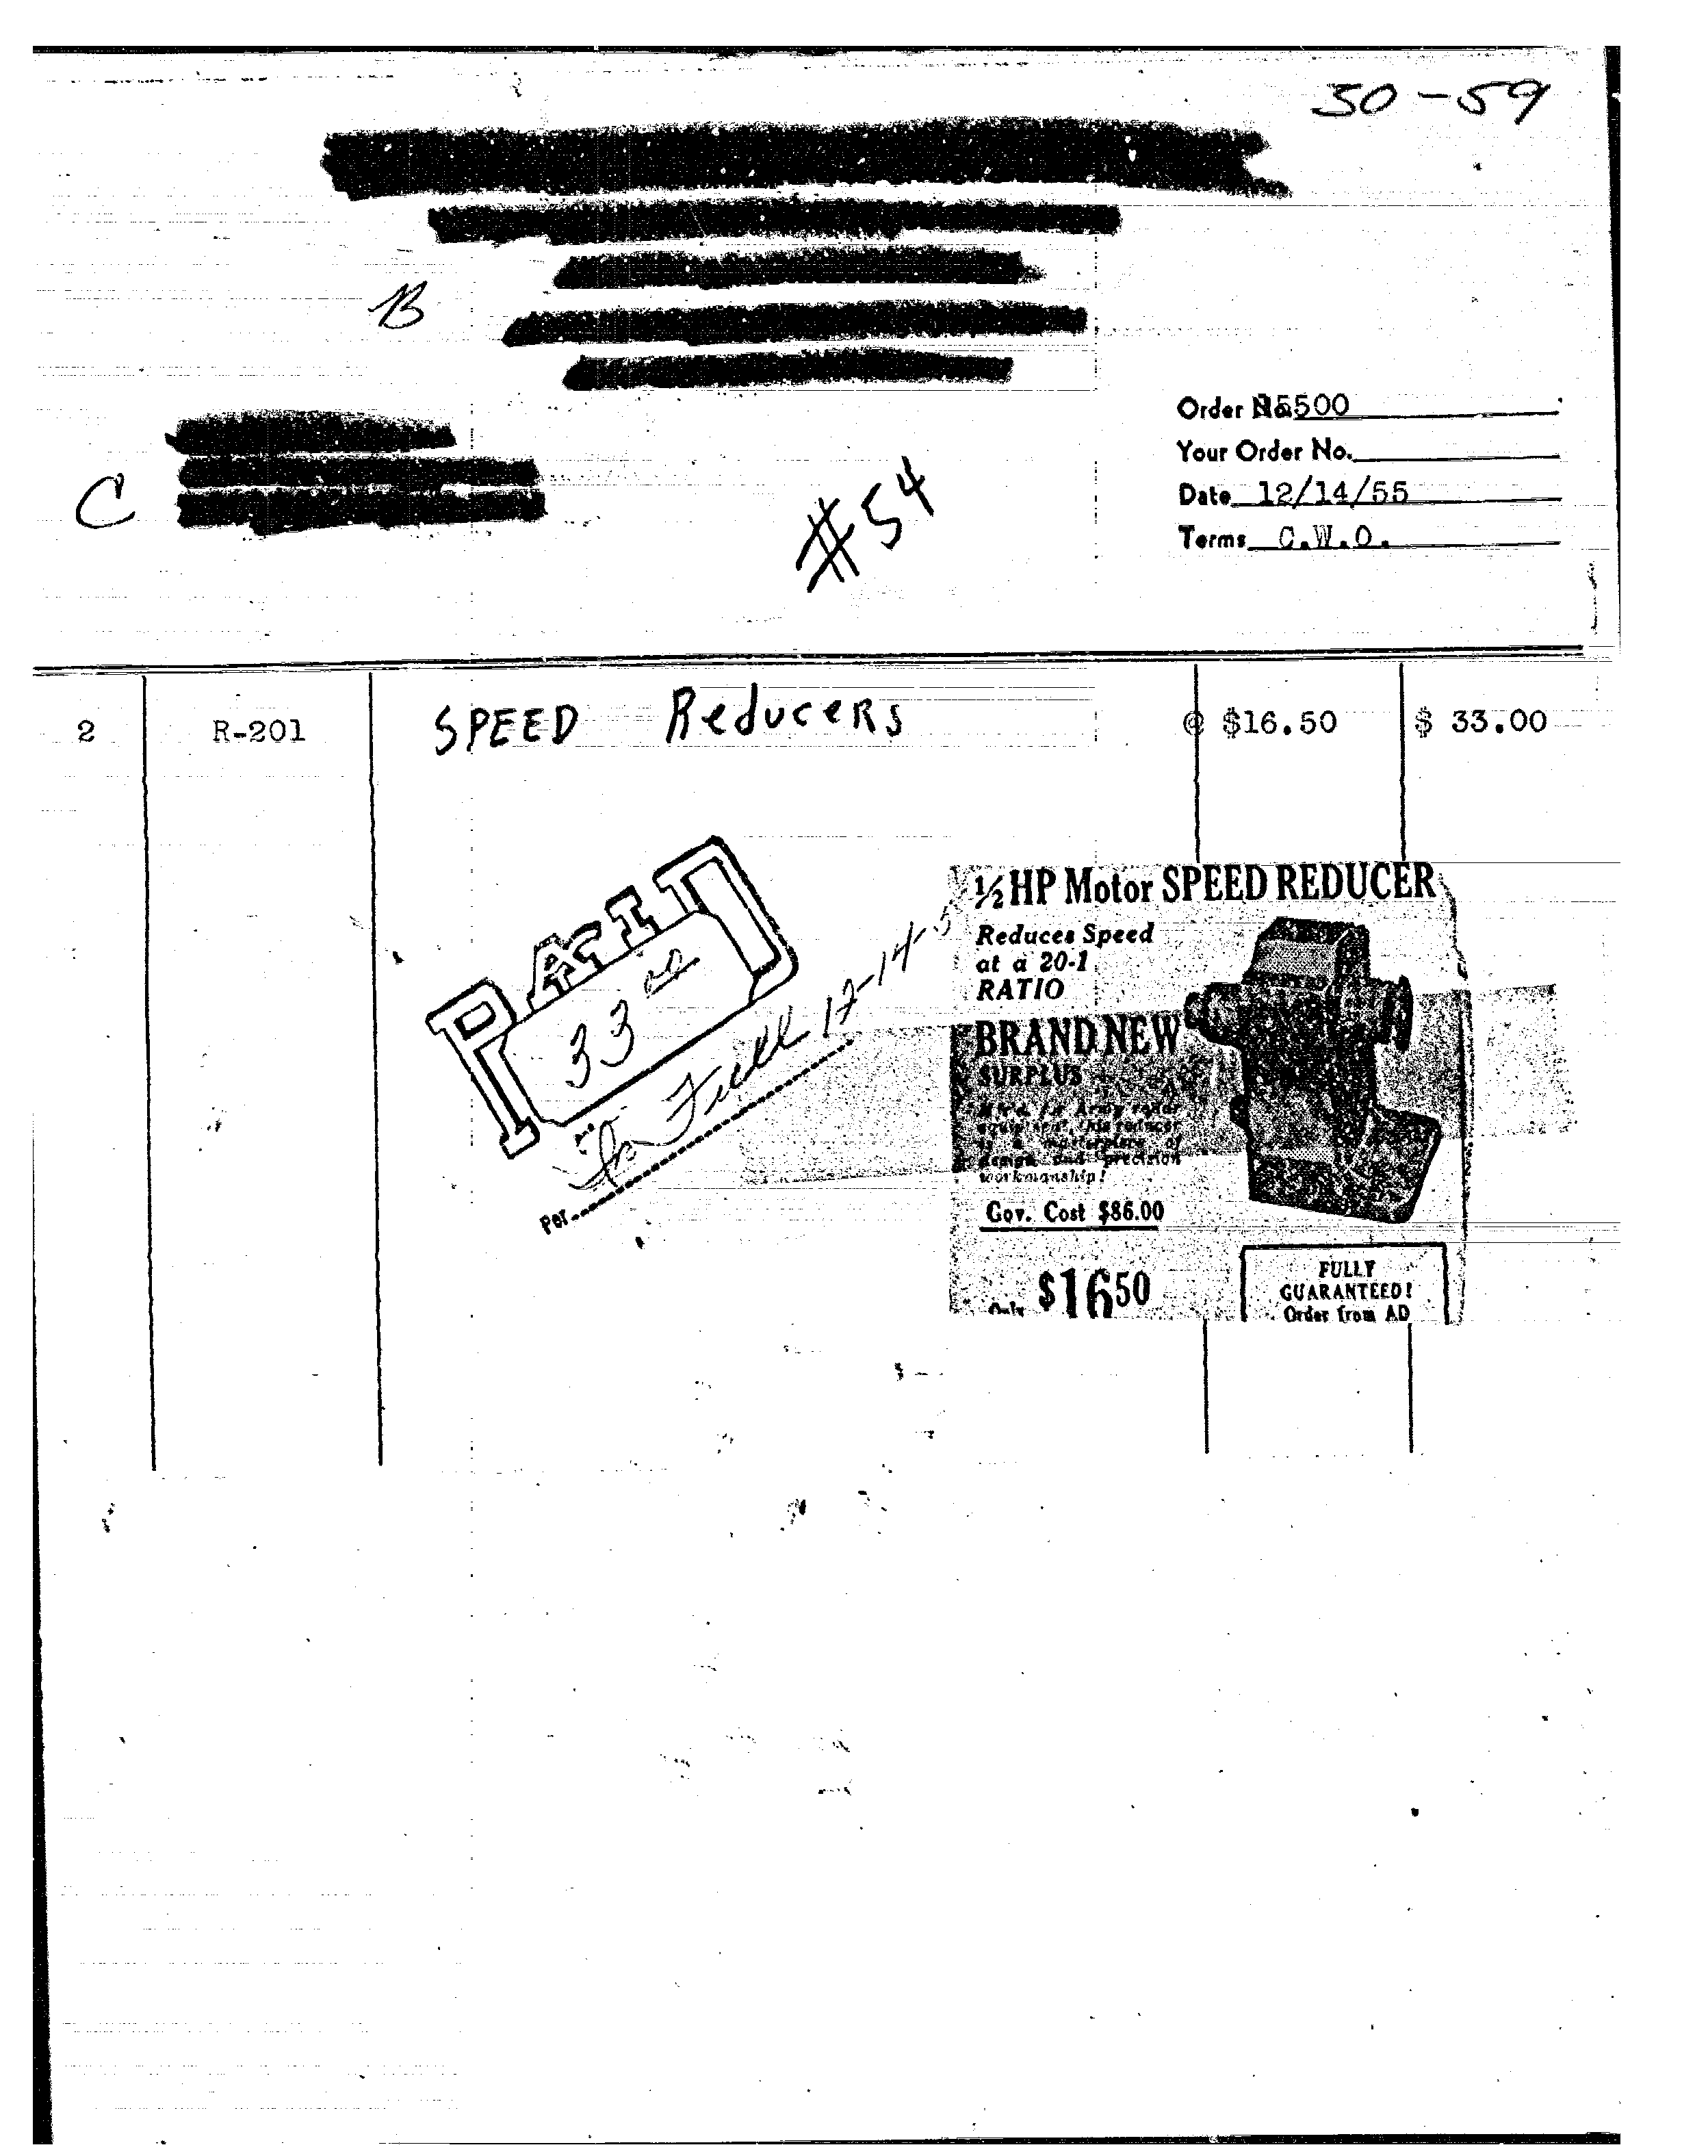 50-59
B
Order No. 35500
Your Order No.
Date 12/14/55
Terms C.W.O.
C
#54
2 R-201 SPEED Reducers @ $16.50 $ 33.00
PAID
33 00
In Full 12-14-5
Per
1/2 HP Motor SPEED REDUCER
Reduces Speed
at a 20-1
RATIO
BRAND NEW
SURPLUS
Mfrd. for Army radar
equipment, this reducer
is a masterpiece of
design and precision
workmanship!
Gov. Cost $86.00
Only $16.50
FULLY
GUARANTEED!
Order from AD